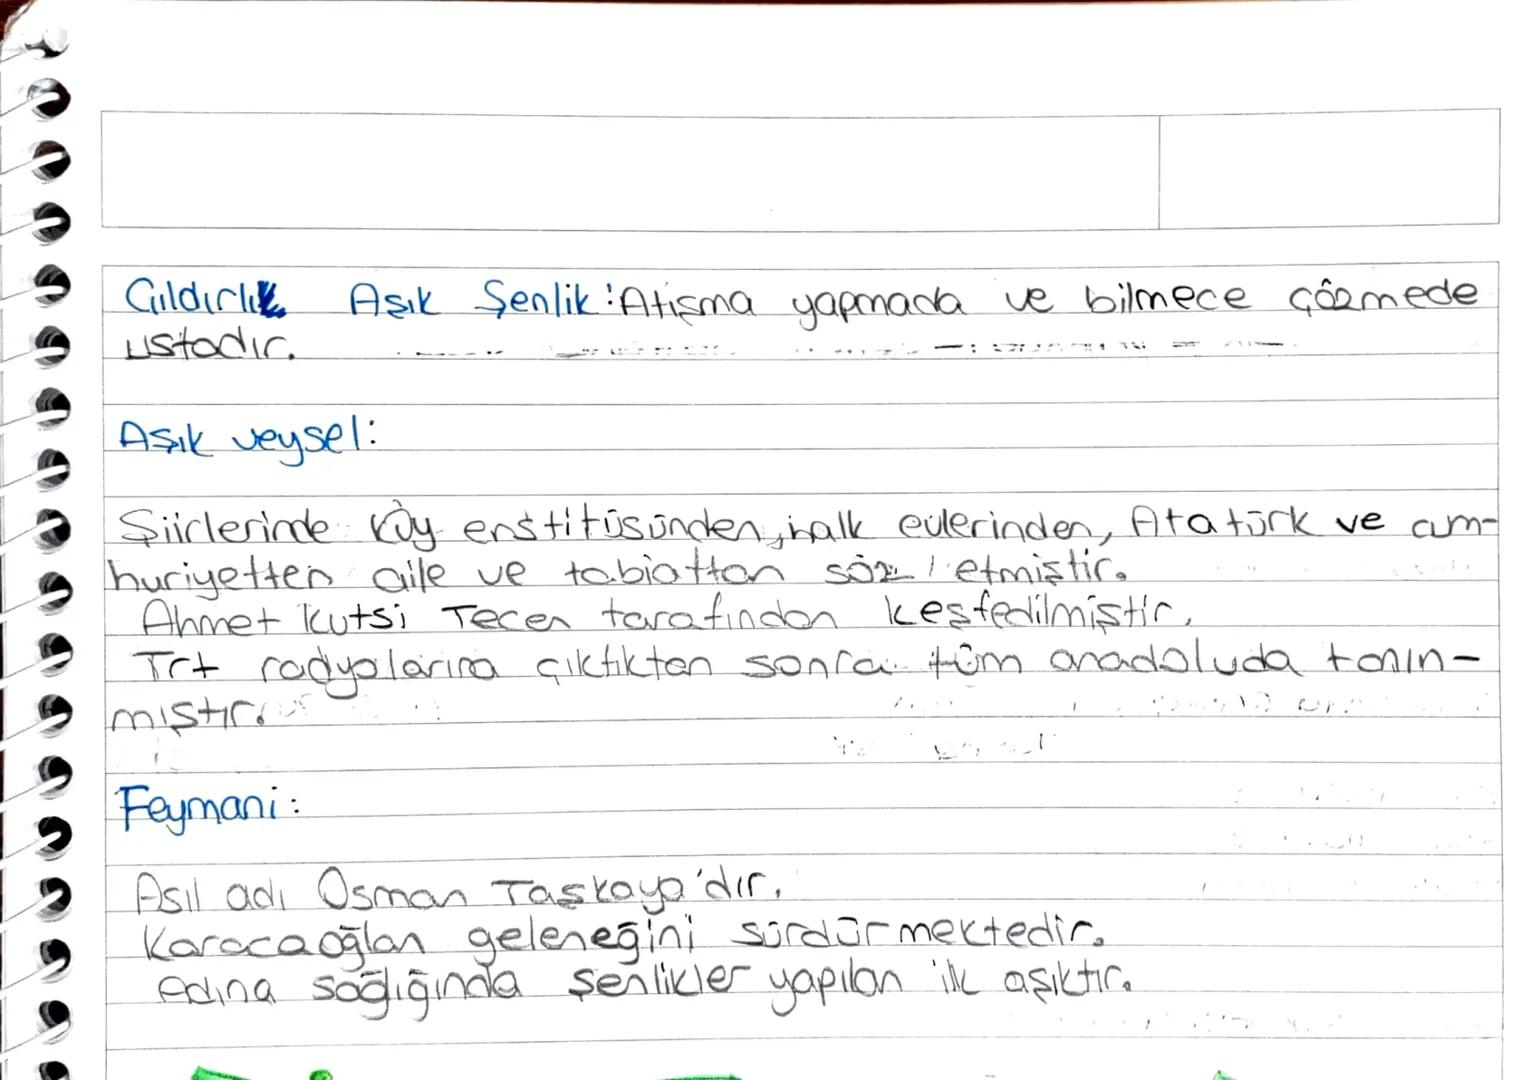 Çıldırlık Aşık Şenlik: Atışma yapmada ve bilmece çözmede
ustadır.
Aşık veysel:
Şiirlerinde köy enstitüsünden, halk evlerinden, Atatürk ve cum-
huriyetten aile ve tabiattan söz etmiştir.
Ahmet Kutsi Tecer tarafından keşfedilmiştir.
Trt radyolarına çıktıktan sonra tüm anadoluda tanın-
mıştır.
Feymani:
Asıl adı Osman Taşkaya'dır.
Karacaoğlan geleneğini sürdürmektedir.
Adına sağlığında şenlikler yapılan ilk aşıktır.